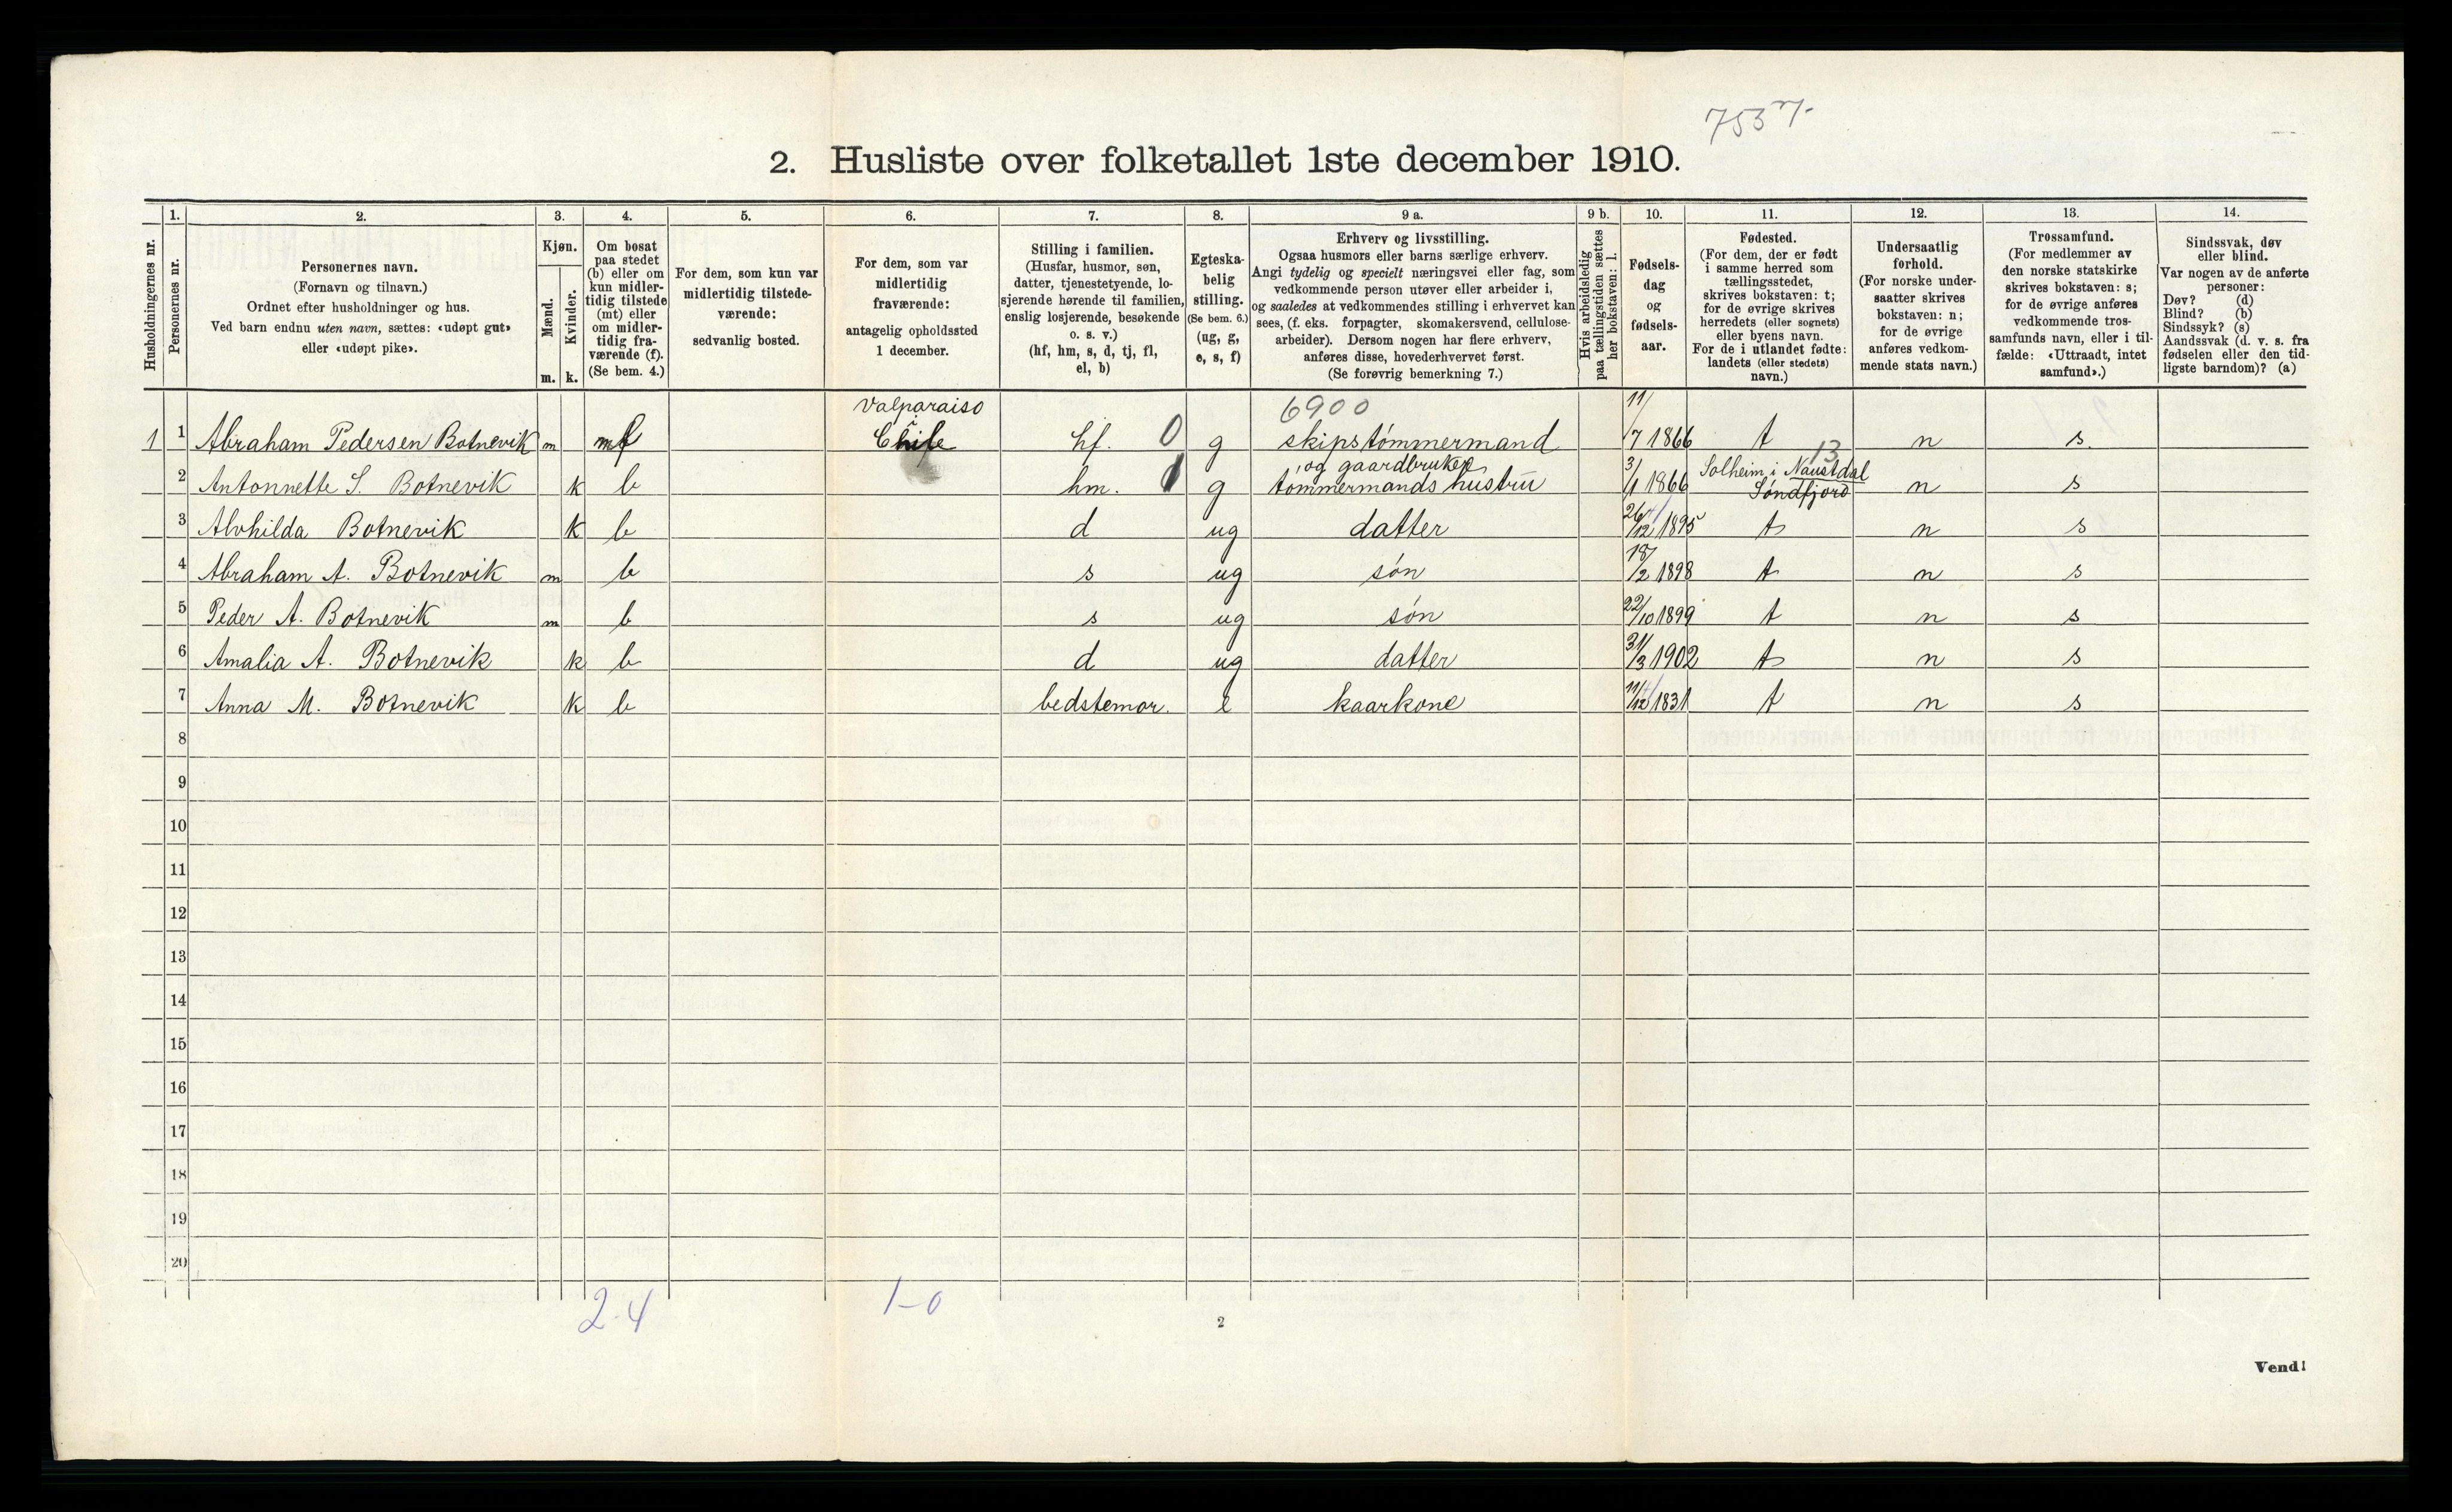 753 7.
2. Husliste over folketallet 1ste december 1910.
Husholdningernes nr.
1.
Personernes nr.
2.
Personernes navn.
(Fornavn og tilnavn.)
Ordnet efter husholdninger og hus.
Ved barn endnu uten navn, sættes: «udøpt gut»
eller «udøpt pike».
3.
Kjøn.
Mænd.
Kvinder.
m. k.
4.
Om bosat
paa stedet
(b) eller om
kun midler-
tidig tilstede
(mt) eller
om midler-
tidig fra-
værende (f).
(Se bem. 4.)
5.
For dem, som kun var
midlertidig tilstede-
værende:
sedvanlig bosted.
6.
For dem, som var
midlertidig
fraværende:
antagelig opholdssted
1 december.
7.
Stilling i familien.
(Husfar, husmor, søn,
datter, tjenestetyende, lo-
sjerende hørende til familien,
enslig losjerende, besøkende
o. s. v.)
(hf, hm, s, d, tj, fl,
el, b)
8.
Egteska-
belig
stilling.
(Se bem. 6.)
(ug, g,
e, s, f)
9 a.
Erhverv og livsstilling.
Ogsaa husmors eller barns særlige erhverv.
Angi tydelig og specielt næringsvei eller fag, som
vedkommende person utøver eller arbeider i,
og saaledes at vedkommendes stilling i erhvervet kan
sees, (f. eks. forpagter, skomakersvend, cellulose-
arbeider). Dersom nogen har flere erhverv,
anføres disse, hovederhvervet først.
(Se forøvrig bemerkning 7.)
9 b.
Hvis arbeidsledig
paa tællingstiden sættes
her bokstaven: l.
10.
Fødsels-
dag
og
fødsels-
aar.
11.
Fødested.
(For dem, der er født
i samme herred som
tællingsstedet,
skrives bokstaven: t;
for de øvrige skrives
herredets (eller sognets)
eller byens navn.
For de i utlandet fødte:
landets (eller stedets)
navn.)
12.
Undersaatlig
forhold.
(For norske under-
saatter skrives
bokstaven: n;
for de øvrige
anføres vedkom-
mende stats navn.)
13.
Trossamfund.
(For medlemmer av
den norske statskirke
skrives bokstaven: s;
for de øvrige anføres
vedkommende tros-
samfunds navn, eller i til-
fælde: «Uttraadt, intet
samfund».)
14.
Sindssvak, døv
eller blind.
Var nogen av de anførte
personer:
Døv? (d)
Blind? (b)
Sindssyk? (s)
Aandssvak (d. v. s. fra
fødselen eller den tid-
ligste barndom)? (a)
Valparaiso 6900
1 1 Abraham Pedersen Botnevik m f Chile hf. 0 g skipstømmermand 11/7 1866 t n s.
og gaardbruker 13
2 Antonnette S. Botnevik k b hm. 1 g tømmermands hustru 3/1 1866 Solheim i Naustdal Søndfjord n s
3 Alvhilda Botnevik k b d ug datter 26/12 1895 t n s
4 Abraham A. Botnevik m b s ug søn 18/2 1898 t n s
5 Peder A. Botnevik m b s ug søn 22/10 1899 t n s
6 Amalia A. Botnevik k b d ug datter 31/3 1902 t n s
7 Anna M. Botnevik k b bedstemor. e kaarkone 11/12 1831 t n s
8
9
10
11
12
13
14
15
16
17
18
19
20
2-4 1-0
2
Vend!